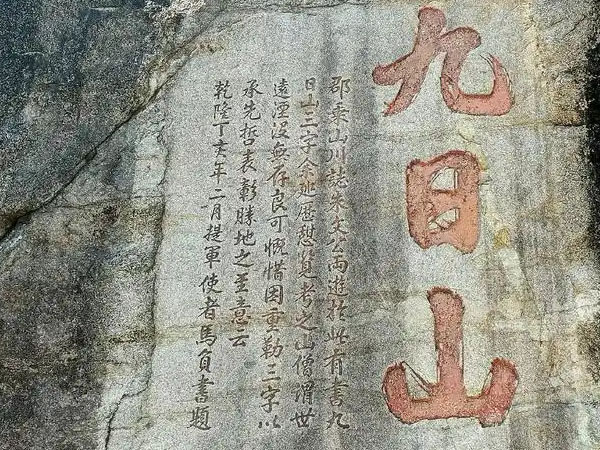 九日山
郡乘山川誌朱文公兩遊於此有書九
日山三字余巡歷想覓考之山僧謂世
遠湮沒無存良可慨惜因重勒三字以
承先哲表彰勝地之至意云
乾隆丁亥年二月提軍使者馬負書題